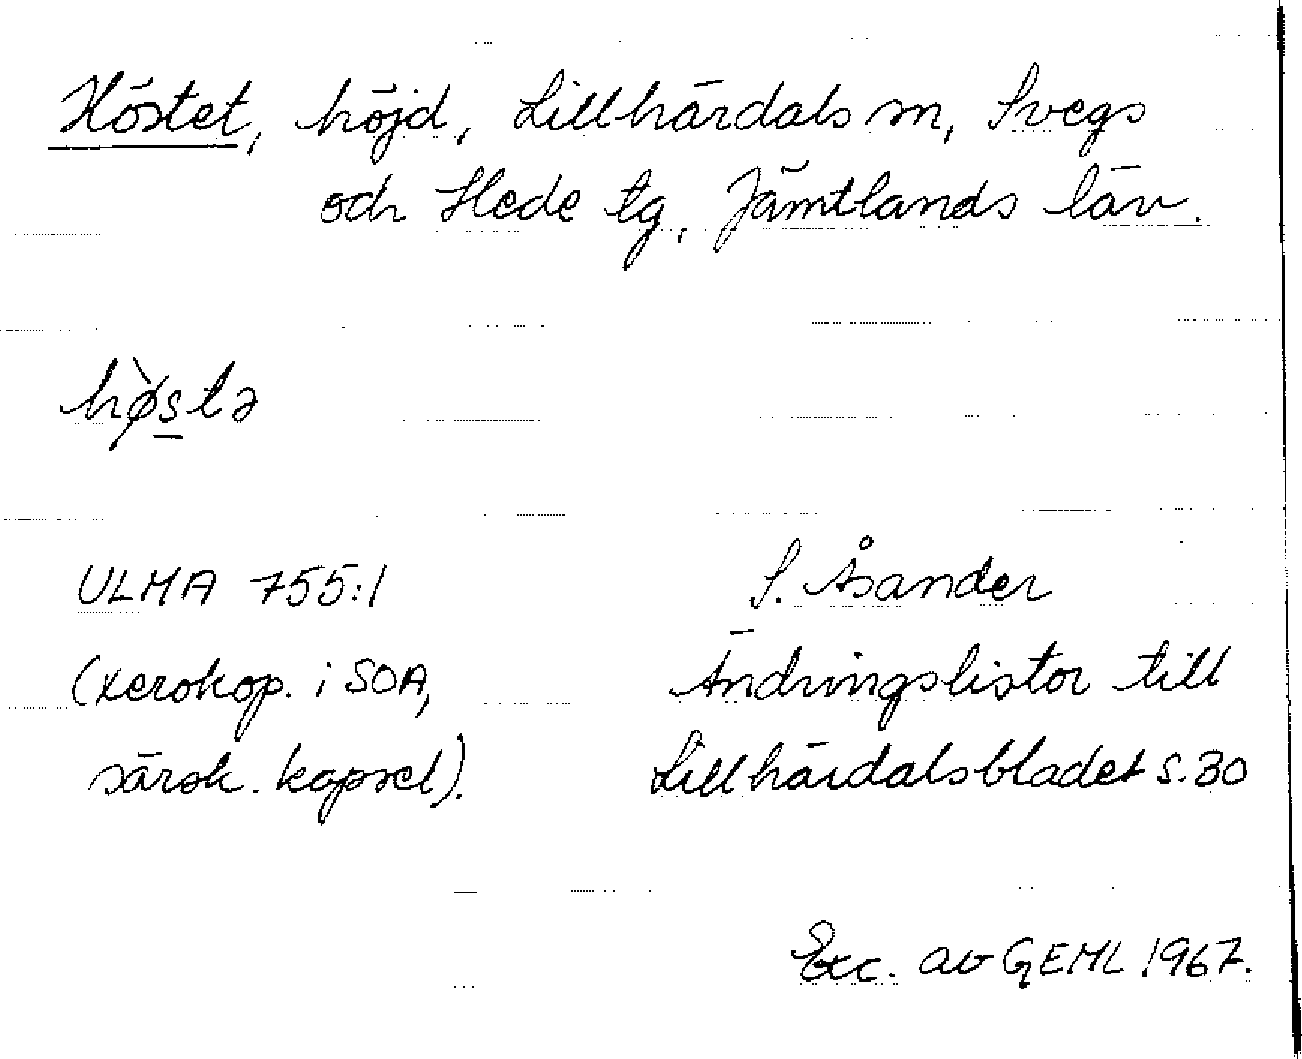 Höstet, höjd, Lillhärdals sn, Svegs
och Hede tg, Jämtlands län.
hø̀stə
ULMA 755:1
(xerokop. i SOA,
särsk. kapsel).
S. Åsander
Ändringslistor till
Lillhärdalsbladet s. 30
Exc. av GEML 1967.